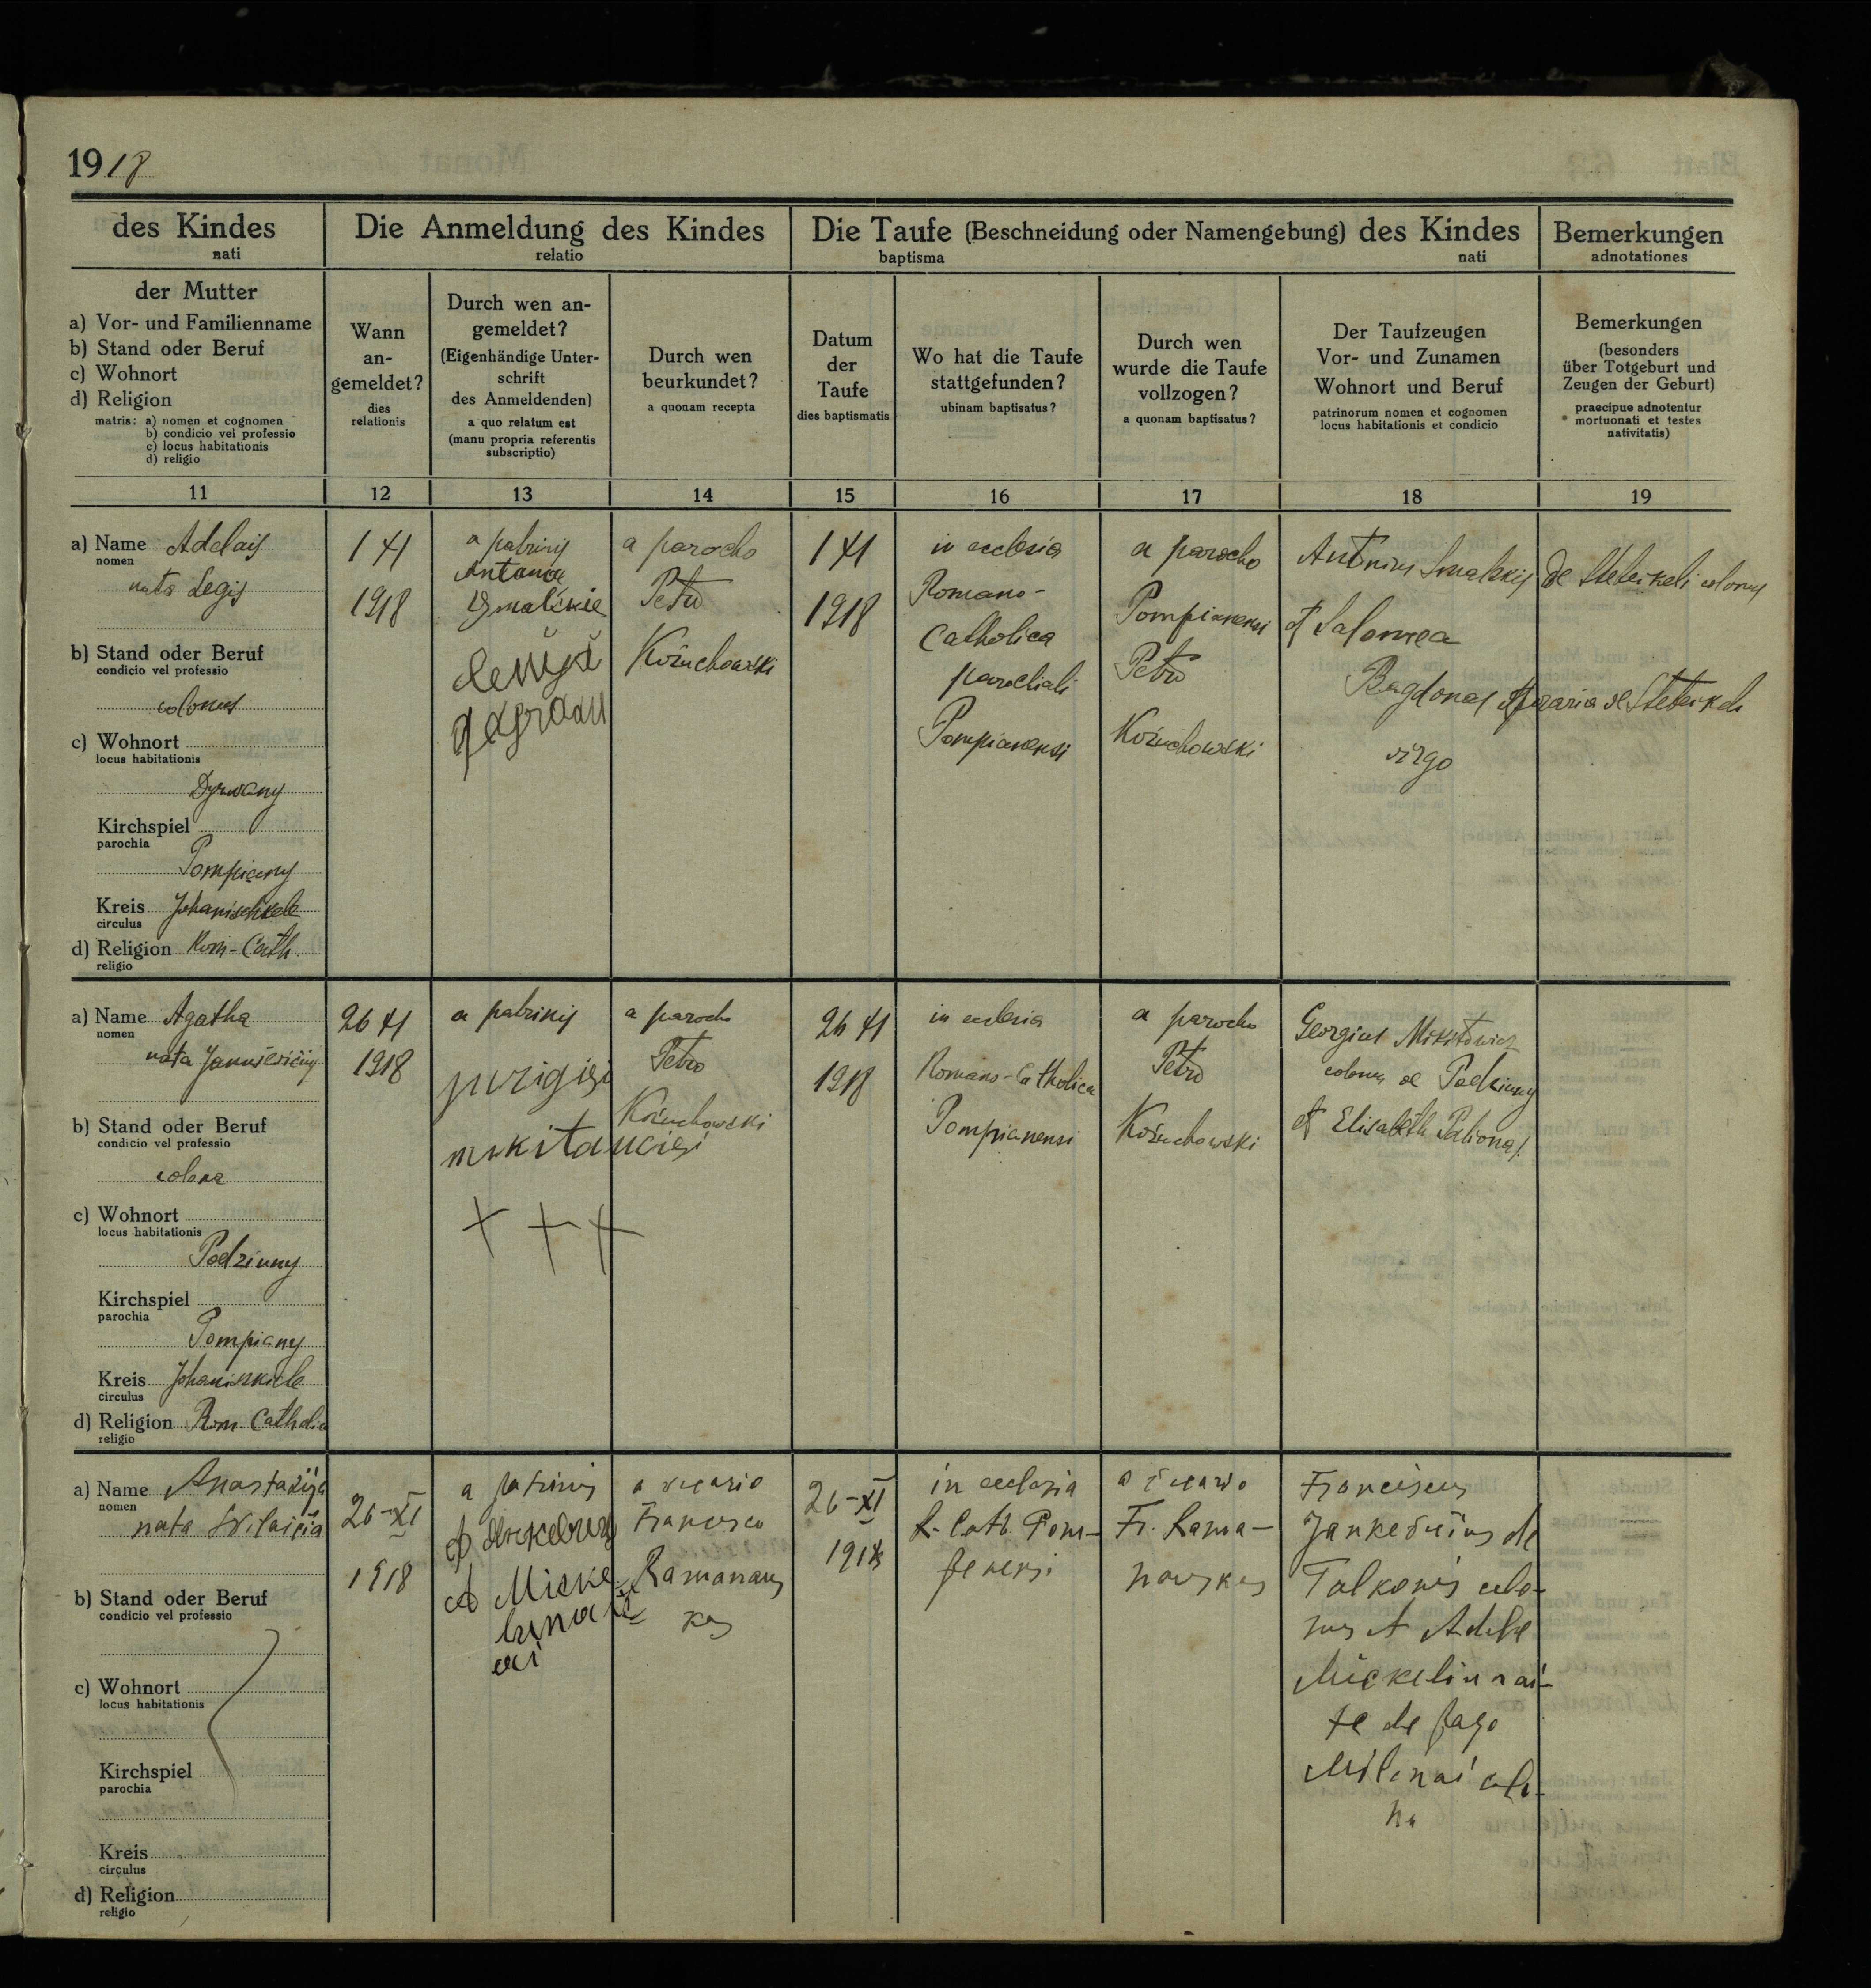 1918
des Kindes
nati
Die Anmeldung des Kindes
relatio
Die Taufe (Beschneidung oder Namengebung) des Kindes
baptisma nati
Bemerkungen
adnotationes
der Mutter
a) Vor- und Familienname
b) Stand oder Beruf
c) Wohnort
d) Religion
matris: a) nomen et cognomen
b) condicio vel professio
c) locus habitationis
d) religio
Wann
an-
gemeldet?
dies
relationis
Durch wen an-
gemeldet?
(Eigenhändige Unter-
schrift
des Anmeldenden)
a quo relatum est
(manu propria referentis
subscriptio)
Durch wen
beurkundet?
a quonam recepta
Datum
der
Taufe
dies baptismatis
Wo hat die Taufe
stattgefunden?
ubinam baptisatus?
Durch wen
wurde die Taufe
vollzogen?
a quonam baptisatus?
Der Taufzeugen
Vor- und Zunamen
Wohnort und Beruf
patrinorum nomen et cognomen
locus habitationis et condicio
Bemerkungen
(besonders
über Totgeburt und
Zeugen der Geburt)
praecipue adnotentur
mortuonati et testes
nativitatis)
11 12 13 14 15 16 17 18 19
a) Name Adelais
nomen
nata Legis
b) Stand oder Beruf
condicio vel professio
colonus
c) Wohnort
locus habitationis
Dyrwany
Kirchspiel
parochia
Pompiany
Kreis Johanischkele
circulus
d) Religion Rom-Cath.
religio
1 XI
1918
a patrinis
Antanas
a parocho
Petro
Kožuchowski
1 XI
1918
in ecclesia
Romano-
Catholica
parochiali
Pompianensi
a parocho
Pompianensi
Petro
Kožuchowski
Antonius Smalskis de colonus
et Salomea
Bagdonas
virgo
a) Name Agatha
nomen
nata
b) Stand oder Beruf
condicio vel professio
colona
c) Wohnort
locus habitationis
Podziuny
Kirchspiel
parochia
Pompiany
Kreis Johaniszkiele
circulus
d) Religion Rom. Catholica
religio
26 XI
1918
a patrinis
jurigisi
mikitaucisi
+ + +
a parocho
Petro
Kožuchowski
26 XI
1918
in ecclesia
Romano-Catholica
Pompianensi
a parocho
Petro
Kožuchowski
Georgius Mikitowicz
colonus de Podziuny
et Elisabeth Palionas.
a) Name Anastazija
nomen
nata
b) Stand oder Beruf
condicio vel professio
c) Wohnort
locus habitationis
Kirchspiel
parochia
Kreis
circulus
d) Religion
religio
26-XI
1918
a patrinis
a vicario
Francisco
Ramanaus
kas
26-XI
1918
in ecclesia
R. Cath. Pom-
penensi
a vicario
Fr. Rama-
nauskas
Franciscus
Jankevičius de
Talkonis colo-
nus et Adele
Mickeliunai-
te de pago
Milinai colo-
na